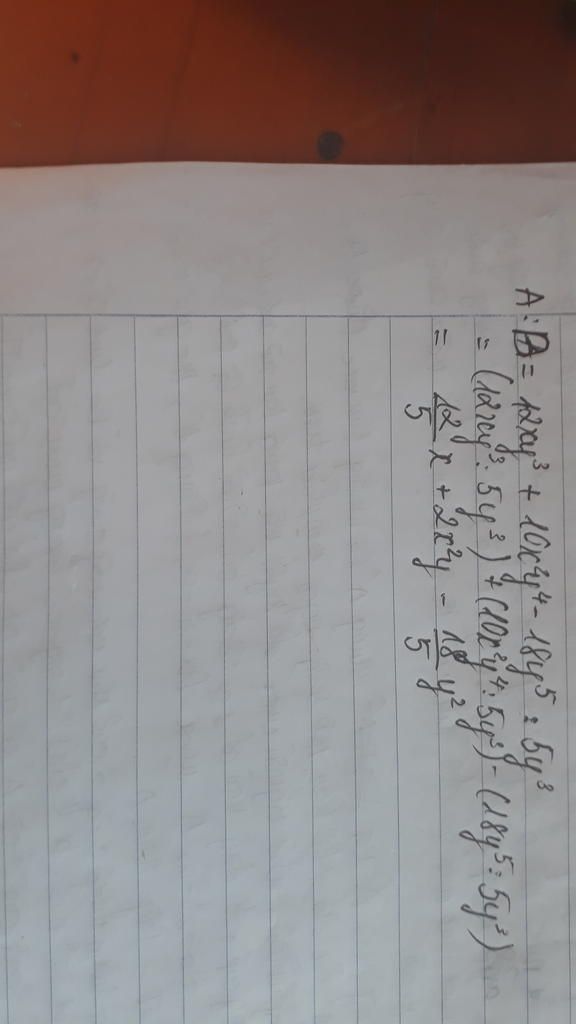 A : B = 12xy³ + 10x²y⁴ - 18y⁵ : 5y³
= (12xy³ : 5y³) + (10x²y⁴ : 5y³) - (18y⁵ : 5y³)
= 12/5 x + 2x²y - 18/5 y²